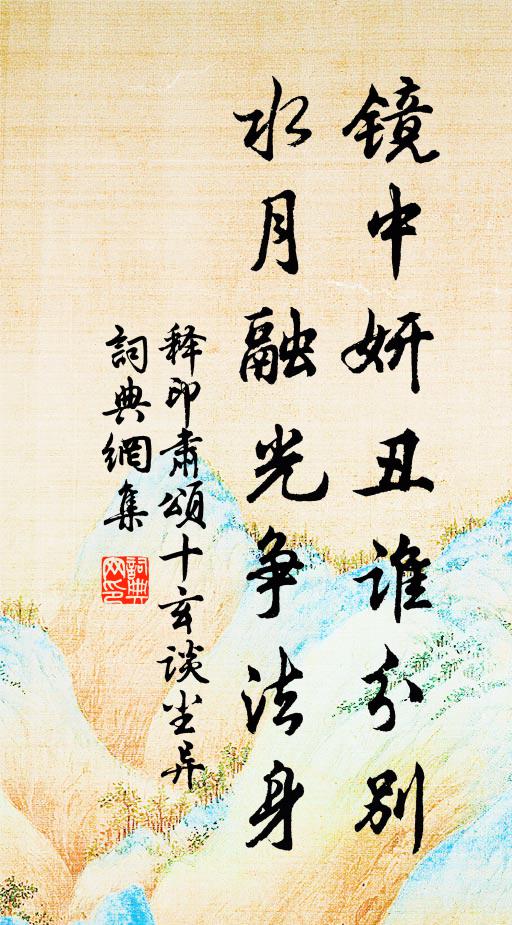 镜中妍丑谁分别
水月融光争法身
释印肃颂十玄谈尘异
詞典網集
詞典网印